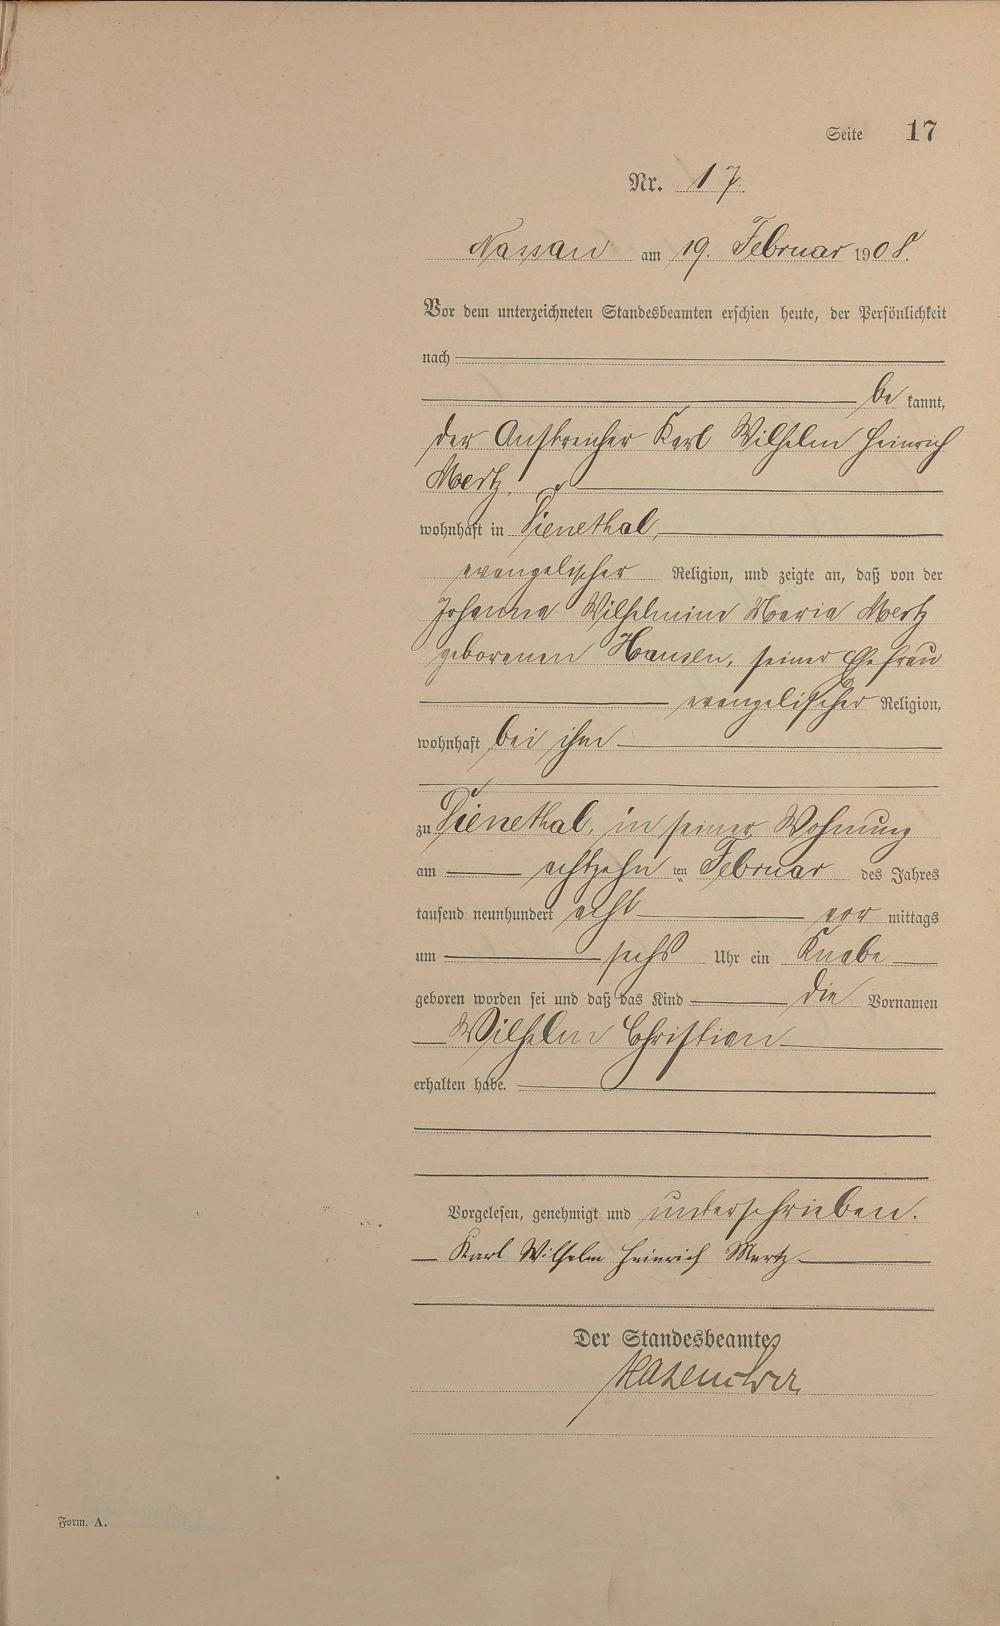 Seite 17
Nr. 17.
Nassau am 19. Februar 1908.
Vor dem unterzeichneten Standesbeamten erschien heute, der Persönlichkeit
nach
be kannt,
der Anstreicher Karl Wilhelm Heinrich
Mertz,
wohnhaft in Dienethal,
evangelischer Religion, und zeigte an, daß von der
Johanna Wilhelmine Maria Mertz
geborenen Hansen, seiner Ehefrau
evangelischer Religion,
wohnhaft bei ihm
zu Dienethal, in seiner Wohnung
am achtzehn ten Februar des Jahres
tausend neunhundert acht vor mittags
um sechs Uhr ein Knabe
geboren worden sei und daß das Kind die Vornamen
Wilhelm Christian
erhalten habe.
Vorgelesen, genehmigt und unterschrieben.
Karl Wilhelm Heinrich Mertz
Der Standesbeamte
Form. A.